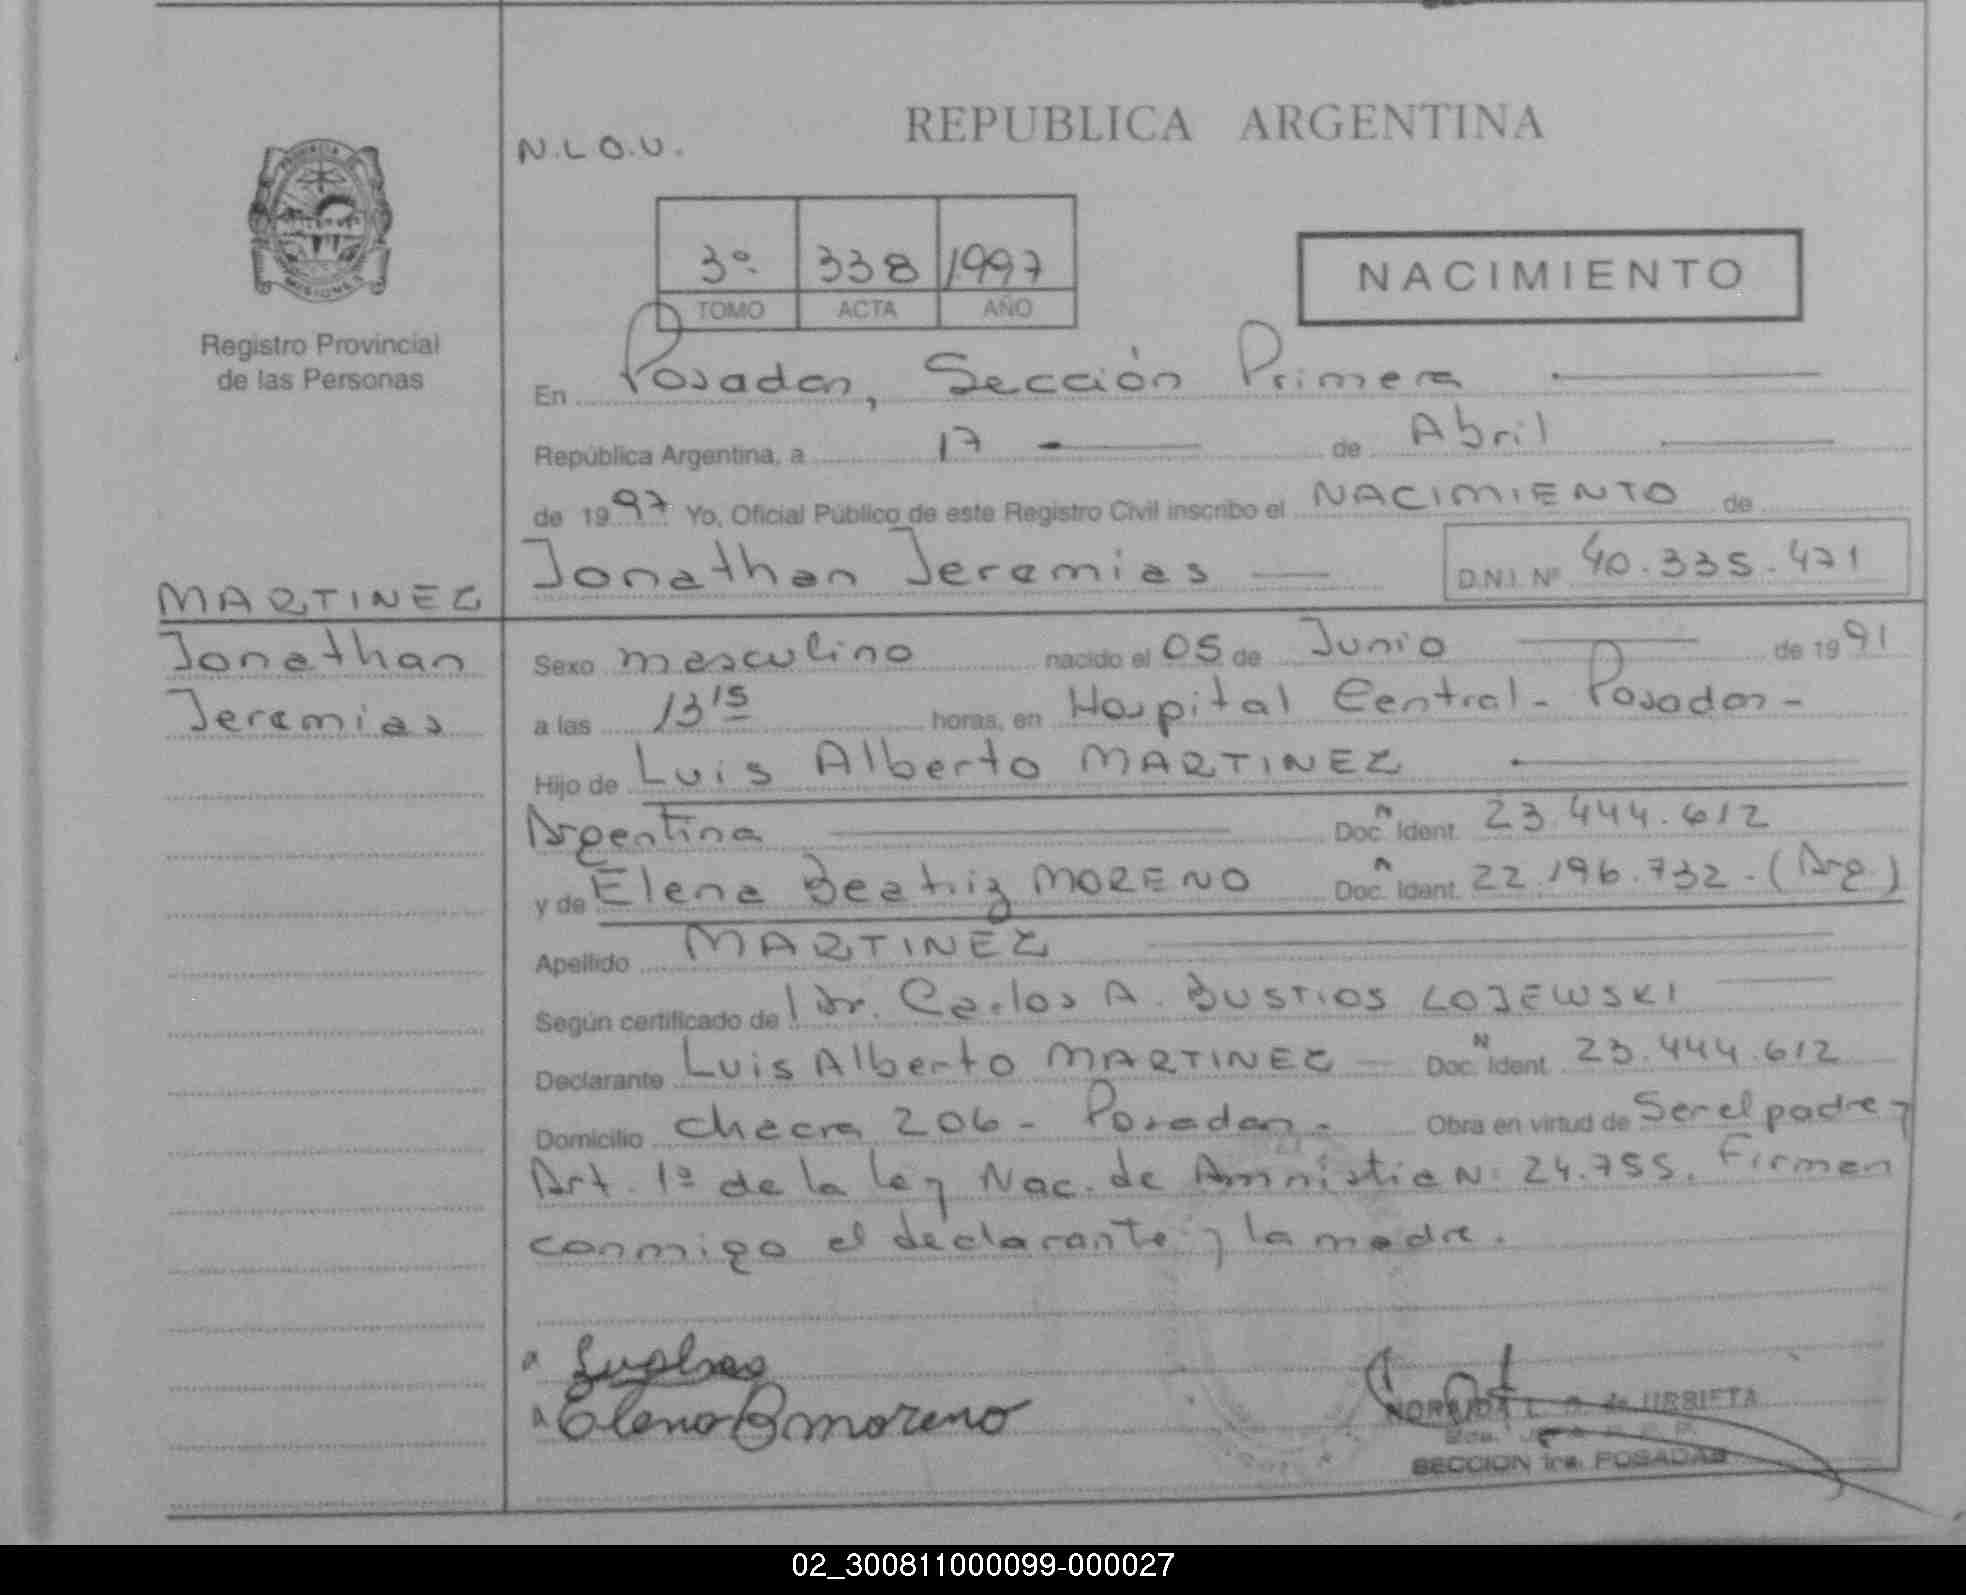 REPUBLICA ARGENTINA
N.L.O.U.
3º 338 1997
TOMO ACTA AÑO
NACIMIENTO
PROVINCIA DE MISIONES
Registro Provincial
de las Personas
En Posadas, Sección Primera
República Argentina, a 17 de Abril
de 1997 Yo, Oficial Público de este Registro Civil inscribo el NACIMIENTO de
Jonathan Jeremias D.N.I. Nº 40.335.471
MARTINEZ
Jonathan
Jeremias
Sexo masculino nacido el 05 de Junio de 1991
a las 13 15 horas, en Hospital Central - Posadas -
Hijo de Luis Alberto MARTINEZ
Argentina Doc. N Ident. 23.444.612
y de Elena Beatriz MORENO Doc. N Ident. 22.196.732. (Arg.)
Apellido MARTINEZ
Según certificado de Dr. Carlos A. BUSTIOS LOJEWSKI
Declarante Luis Alberto MARTINEZ Doc. N Ident. 23.444.612
Domicilio chacra 206 - Posadas. Obra en virtud de Ser el padre y
Art. 1º de la ley Nac. de Amnistia N: 24.755. Firman
conmigo el declarante y la madre.
Elena B moreno
de URRIETA
SECCION 1ra. POSADAS
02_300811000099-000027